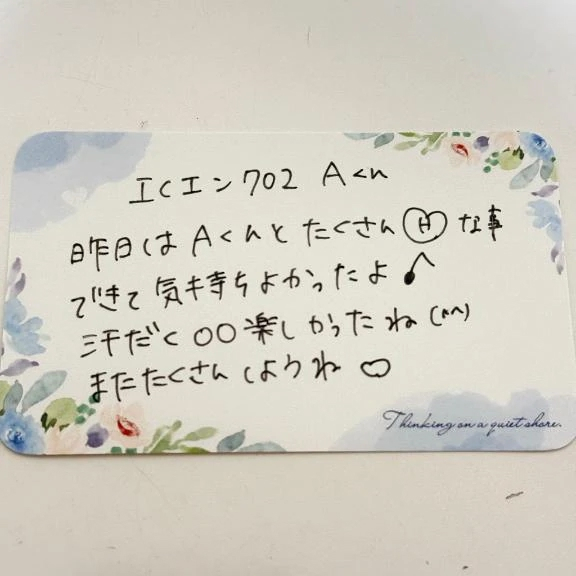 ICエン702 Aくん
昨日はAくんとたくさんHな事
できて気持ちよかったよ♪
汗だく〇〇楽しかったね(^^)
またたくさんしようね♡
Thinking on a quiet shore.